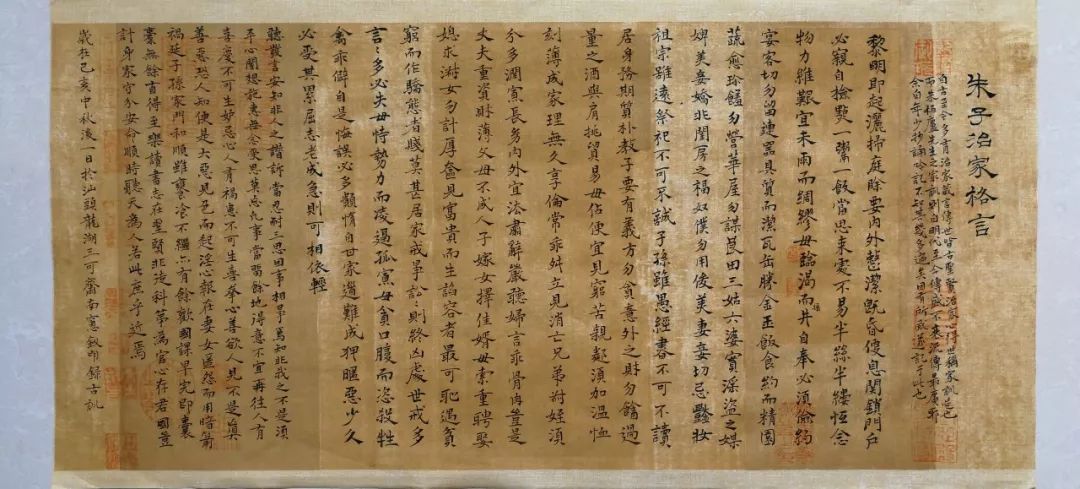 朱子治家格言
自古至今多有治家箴言傳世皆古聖賢治家心得世稱家訓是也
而朱柏廬先生之家訓則自明代至今傳盛不衰流傳最
余自年少初誦吟記不知其幾多遍矣因有所感遂記于此也
黎明即起灑掃庭除要內外整潔既昏便息関鎖門戶
必親自檢點一粥一飯當思來處不易半絲半縷恒念
物力維艱宜未雨而綢繆毋臨渴而掘井自奉必須儉約
宴客切勿留連器具質而潔瓦缶勝金玉飯食約而精園
蔬愈珍饈勿營華屋勿謀良田三姑六婆實淫盜之媒
婢美妾嬌非閨房之福奴僕勿用俊美妻妾切忌豔妝
祖宗雖遠祭祀不可不誠子孫雖愚經書不可不讀
居身務期質朴教子要有義方勿貪意外之財勿飲過
量之酒與肩挑貿易毋佔便宜見窮苦親鄰須加溫恤
刻薄成家理無久享倫常乖舛立見消亡兄弟叔姪須
分多潤寡長幼內外宜法肅辭嚴聽婦言乖骨肉豈是
丈夫重資財薄父母不成人子嫁女擇佳婿毋索重聘娶
媳求淑女勿計厚奩見富貴而生諂容者最可恥遇貧
窮而作驕態者賤莫甚居家戒爭訟訟則終凶處世戒多
言言多必失毋恃勢力而凌逼孤寡毋貪口腹而恣殺牲
禽乖僻自是悔誤必多頹惰自甘家道難成狎暱惡少久
必受其累屈志老成急則可相依輕
聽發言安知非人之譖訴當忍耐三思因事相爭焉知非我之不是須
平心闇想施惠無念受恩莫忘凡事當留餘地得意不宜再往人有
喜慶不可生妒忌心人有禍患不可生喜幸心善欲人見不是真
善惡恐人知便是大惡見色而起淫心報在妻女匿怨而用暗箭
禍延子孫家門和順雖饔飧不繼亦有餘歡國課早完即囊
橐無餘自得至樂讀書志在聖賢非徒科第為官心在君國豈
計身家守分安命順時聽天為人若此庶乎近焉
歲在己亥中秋後一日於汕頭龍湖三可齋南憲敬錄古訓